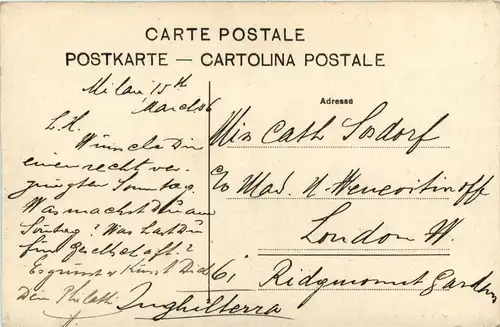 CARTE POSTALE
POSTKARTE — CARTOLINA POSTALE
Milan 15th
March 06
L. K.
Wünsche Dir
einen recht ver-
gnügten Sonntag.
Was machst Du am
Sonntag? Was hast Du
für Gesellschaft?
Es grüsst & küsst Dich
Dein
Adresse
Miss Cath Sosdorf
c/o Mad. H.
London W.
6, Ridgmount Gardens
Inghilterra